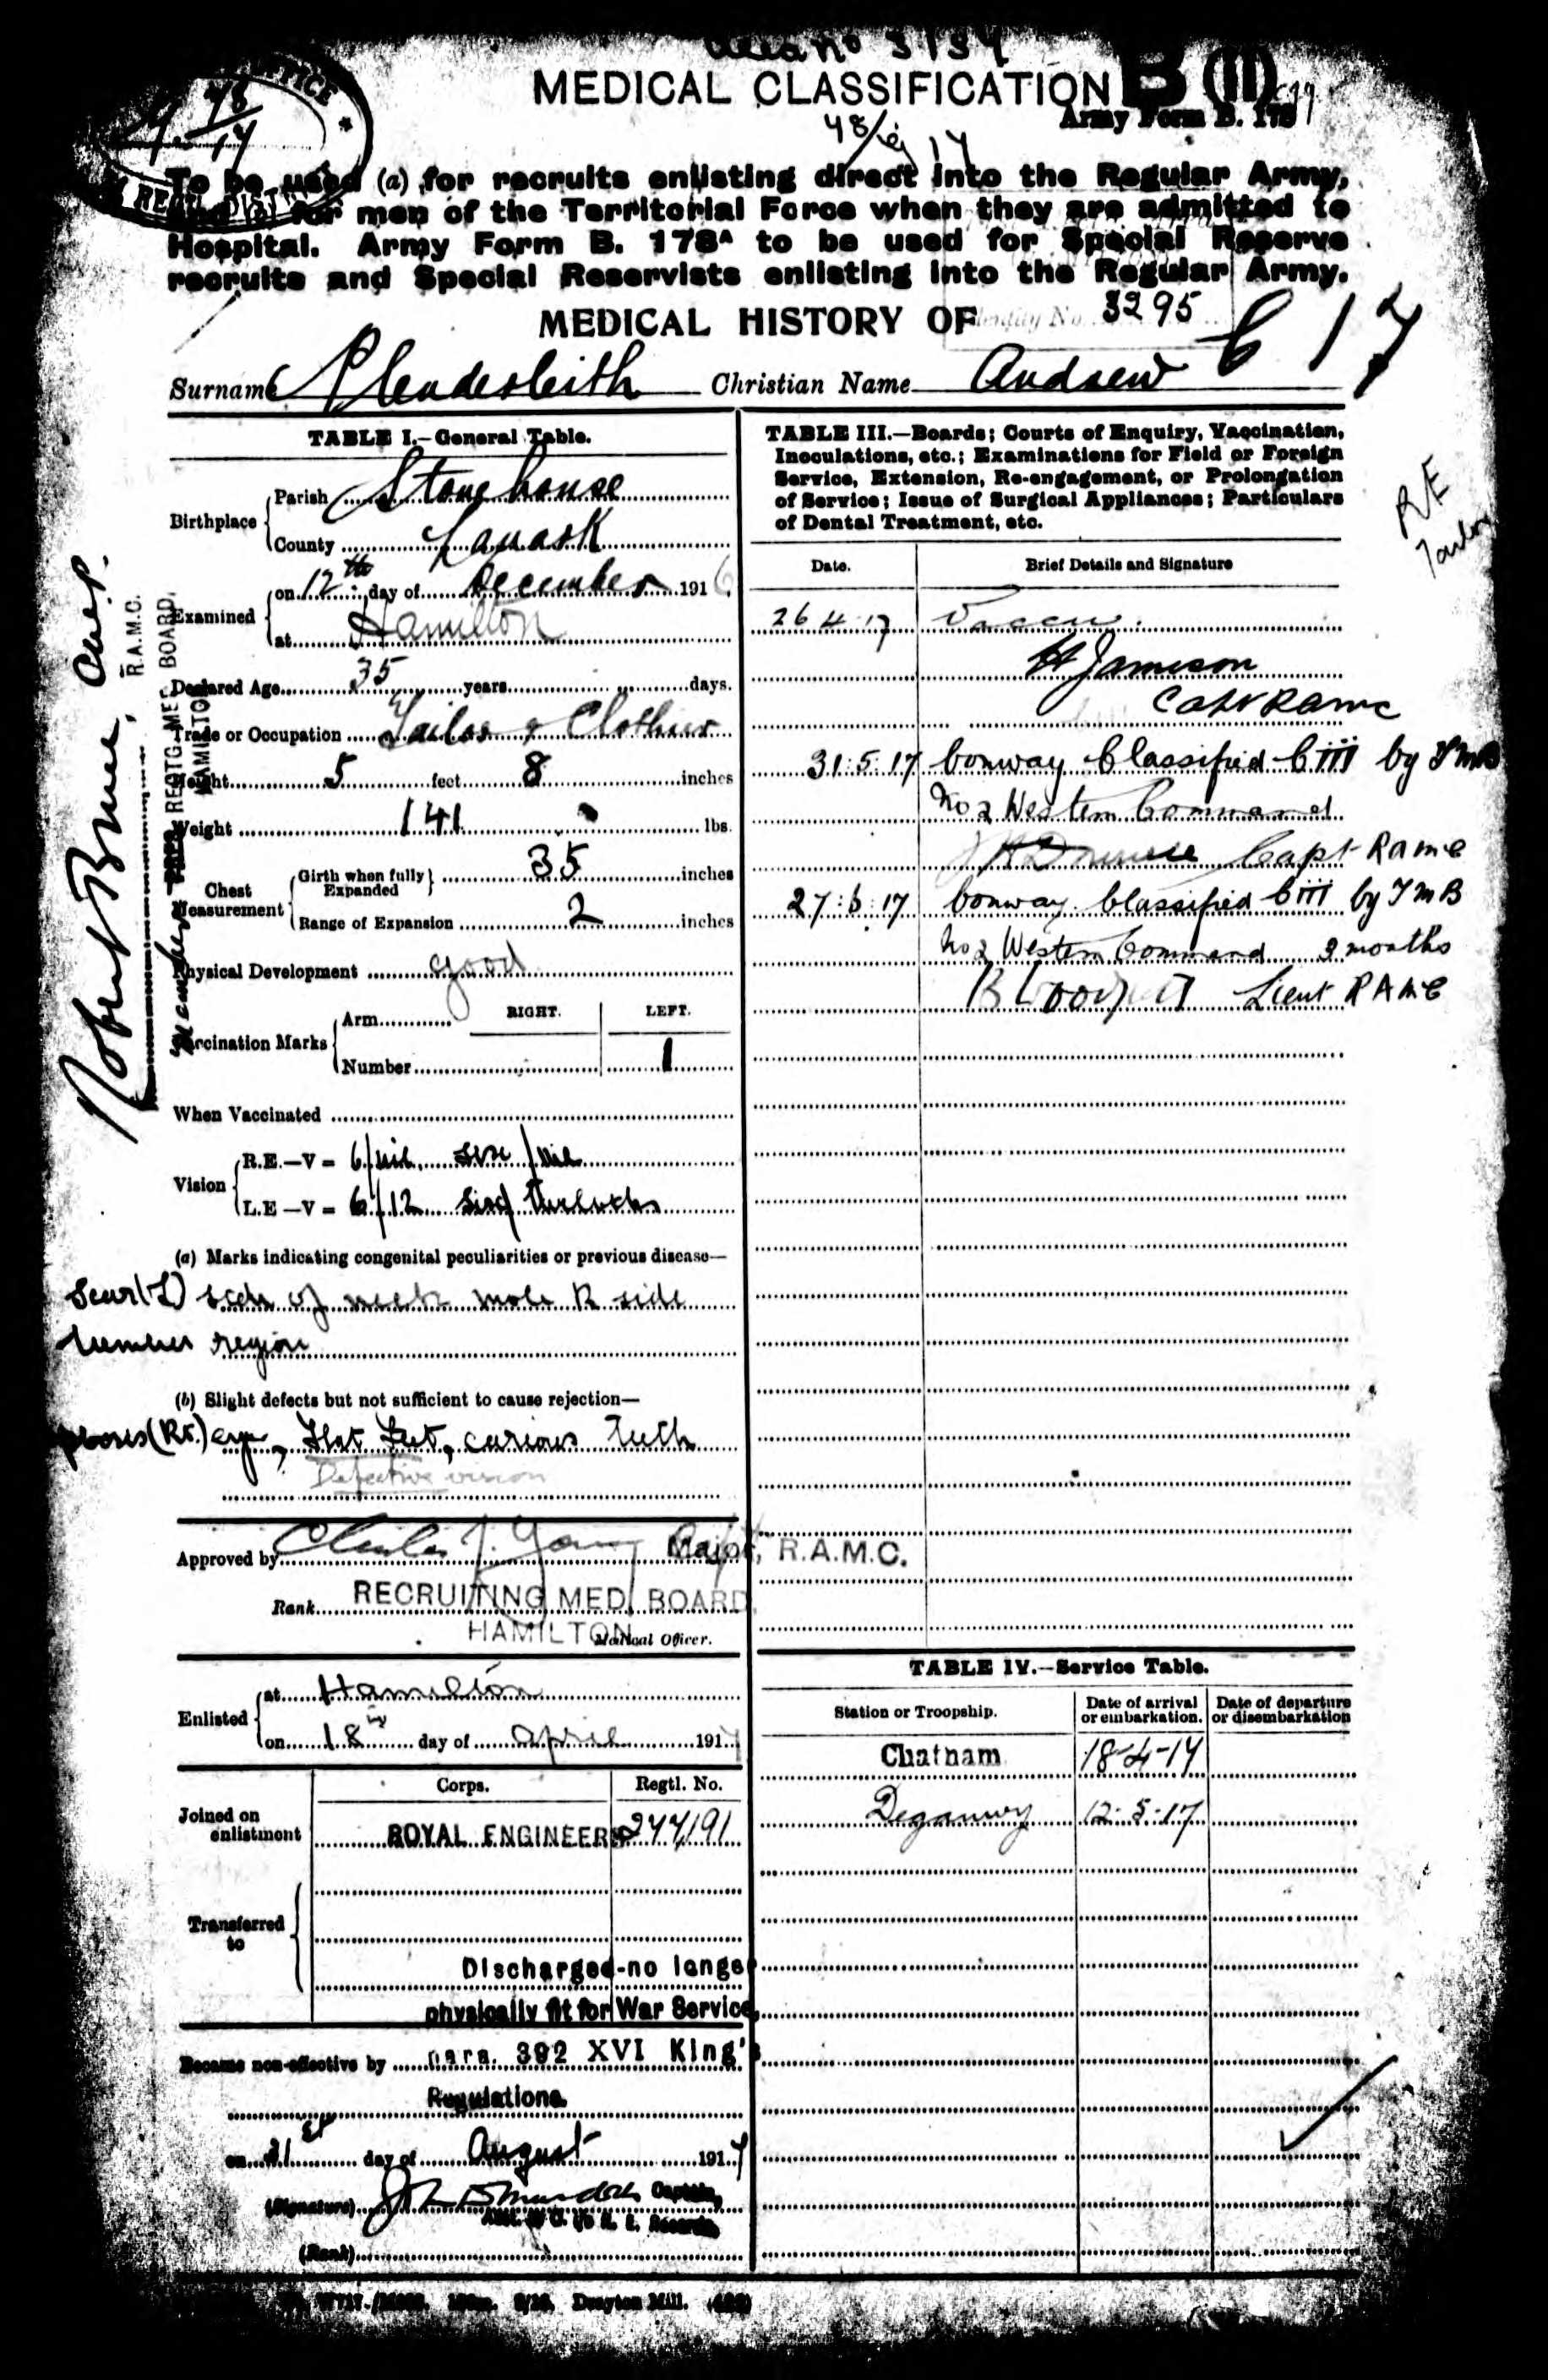 3134
MEDICAL CLASSIFICATION B (II)
Army Form B. 178
48/ 17
48/17
To be used (a) for recruits enlisting direct into the Regular Army,
and (b) for men of the Territorial Force when they are admitted to
Hospital. Army Form B. 178A to be used for Special Reserve
recruits and Special Reservists enlisting into the Regular Army.
MEDICAL HISTORY OF
3295
C 17
Surname Plenderleith Christian Name Andrew
TABLE I.—General Table.
Birthplace Parish Stonehouse
County Lanark
Examined on 12th day of December 1916
at Hamilton
Declared Age 35 years days.
Trade or Occupation Tailor & Clothier
Height 5 feet 8 inches
Weight 141 lbs.
Chest Measurement Girth when fully Expanded 35 inches
Range of Expansion 2 inches
Physical Development good
Vaccination Marks Arm RIGHT. LEFT.
Number 1
When Vaccinated
Vision R.E.—V = 6/nil
L.E—V = 6/12
(a) Marks indicating congenital peculiarities or previous disease—
Scar (L) side of neck mole R side
region
(b) Slight defects but not sufficient to cause rejection—
(Rt.) eye, Flat Feet, carious Teeth
Defective vision
Approved by Charles J. Young Major, R.A.M.C.
Rank RECRUITING MED. BOARD
HAMILTON Medical Officer.
Enlisted at Hamilton
on 18th day of April 1917
Corps. Regtl. No.
Joined on enlistment ROYAL ENGINEERS 244191
Transferred to
Discharged-no longer
physically fit for War Service,
Became non-effective by para. 392 XVI King's
Regulations.
on 21st day of August 1917
(Signature) Captain,
(Rank)
Robert Bruce, Capt.
R.A.M.C.
RECTG. MED. BOARD,
HAMILTON
TABLE III.—Boards; Courts of Enquiry, Vaccination,
Inoculations, etc.; Examinations for Field or Foreign
Service, Extension, Re-engagement, or Prolongation
of Service; Issue of Surgical Appliances; Particulars
of Dental Treatment, etc.
RE
Tailor
Date. Brief Details and Signature
26 4 17 Vaccn.
H Jameson
Capt RAMC
31:5:17 Conway Classified C iii by TMB
No 2 Western Command
Capt RAMC
27:6:17 Conway Classified C iii by TMB
No 2 Western Command 3 months
Lieut RAMC
TABLE IV.—Service Table.
Station or Troopship. Date of arrival or embarkation. Date of departure or disembarkation
Chatham 18-4-17
Deganwy 12-5-17
Drayton Mill.